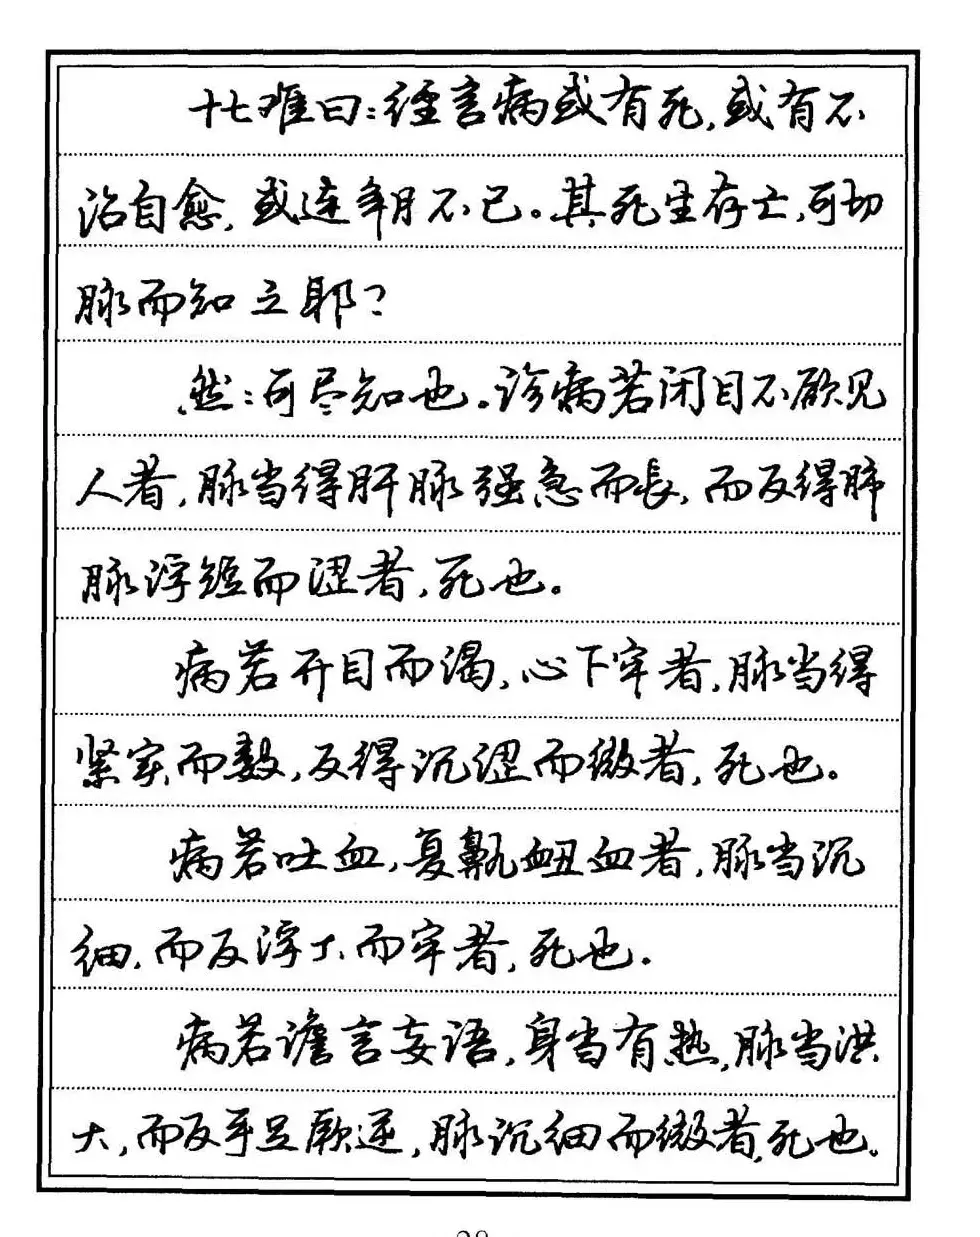 十七难曰:经言病或有死,或有不
治自愈,或连年月不已。其死生存亡,可切
脉而知之耶?
然:可尽知也。诊病若闭目不欲见
人者,脉当得肝脉强急而長,而反得肺
脉浮短而涩者,死也。
病若开目而渴,心下牢者,脉当得
紧实而数,反得沉涩而微者,死也。
病若吐血,复鼽衄血者,脉当沉
细,而反浮大而牢者,死也。
病若谵言妄语,身当有热,脉当洪
大,而反手足厥逆,脉沉细而微者,死也。